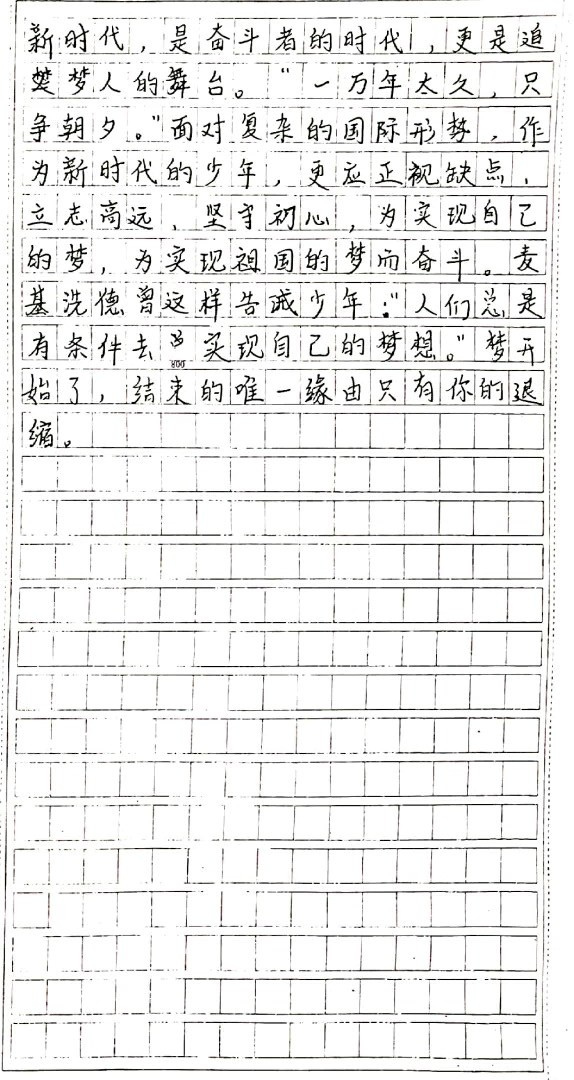 新时代，是奋斗者的时代，更是追
梦人的舞台。“一万年太久，只
争朝夕。”面对复杂的国际形势，作
为新时代的少年，更应正视缺点，
立志高远，坚守初心，为实现自己
的梦，为实现祖国的梦而奋斗。麦
基洗德曾这样告诫少年：“人们总是
有条件去实现自己的梦想。”梦开
800
始了，结束的唯一缘由只有你的退
缩。